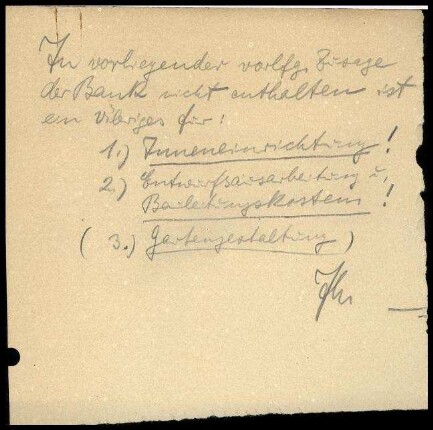 In vorliegender vorlfg. Zusage
der Bank nicht enthalten ist
ein Übriges für:
1.) Inneneinrichtung!
2.) Entwurfsausarbeitung u.
Bauleitungskosten!
( 3.) Gartengestaltung )